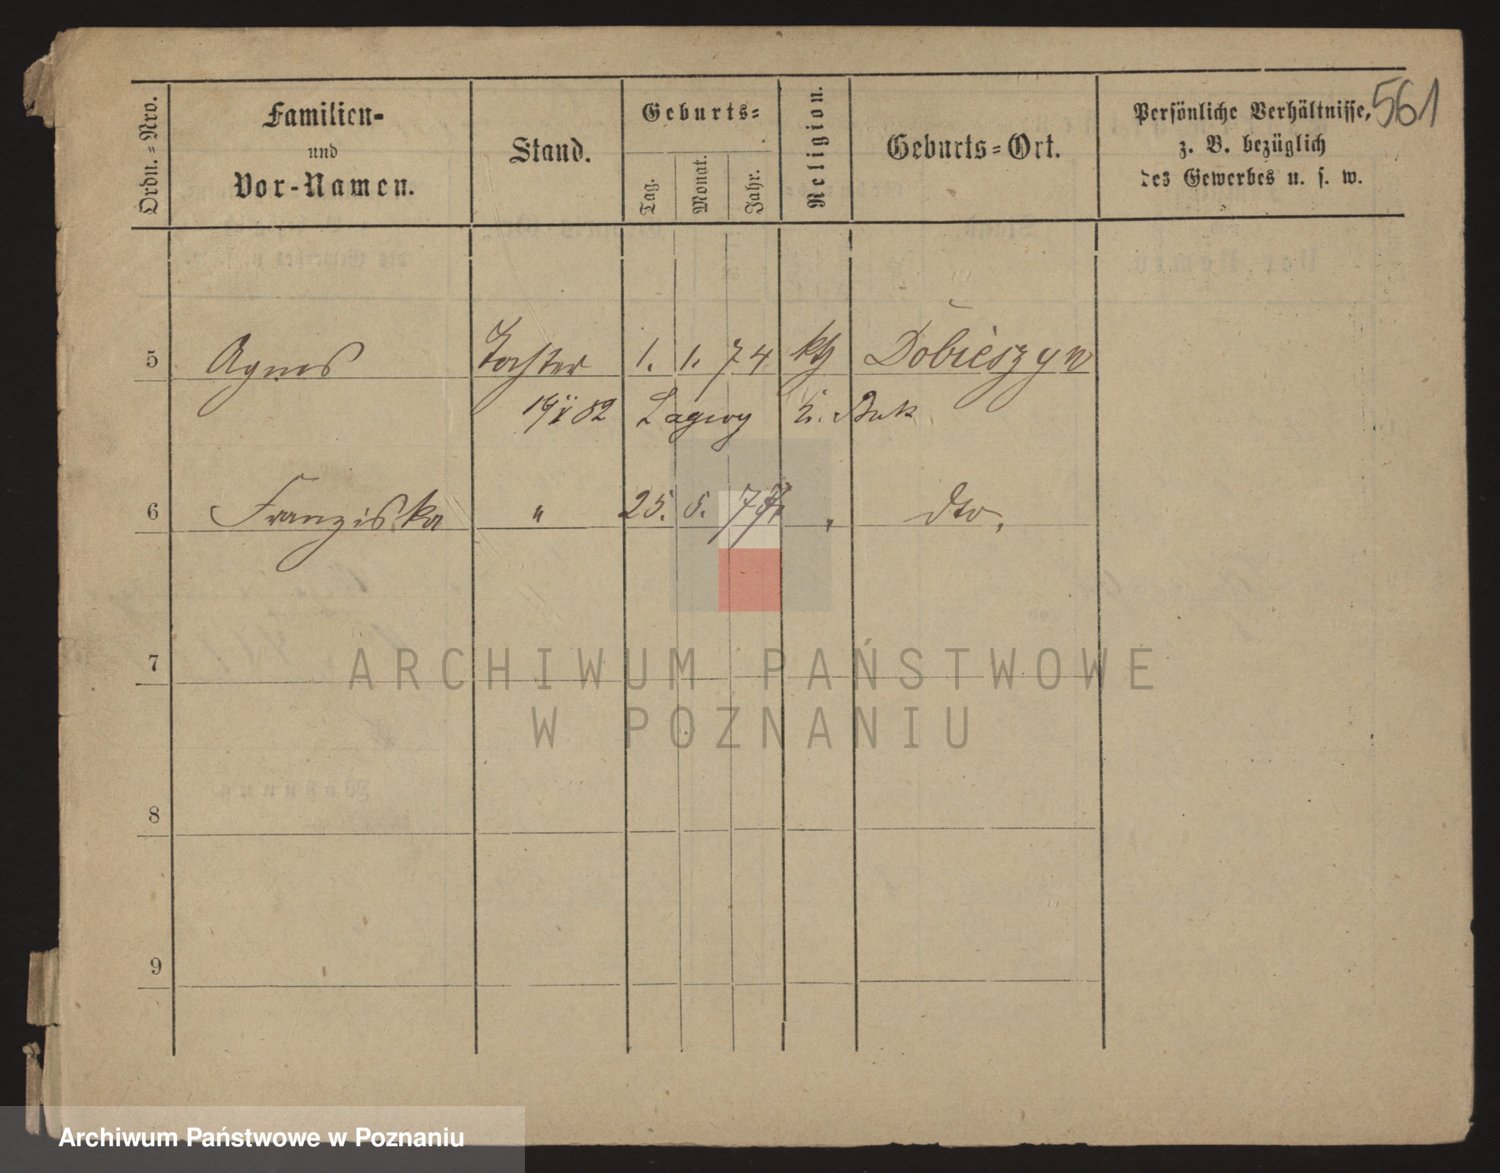 561
Ordn.=Nro.
Familien-
und
Vor-Namen.
Stand.
Geburts=
Tag.
Monat.
Jahr.
Religion.
Geburts=Ort.
Persönliche Verhältnisse,
z. B. bezüglich
des Gewerbes u. s. w.
5 Agnes Tochter 1. 1. 74. kth Dobieszyn
82 Lagwy k. Buk
6 Franziska " 25. 8. 77. " dto.
7
8
9
ARCHIWUM PAŃSTWOWE
W POZNANIU
Archiwum Państwowe w Poznaniu